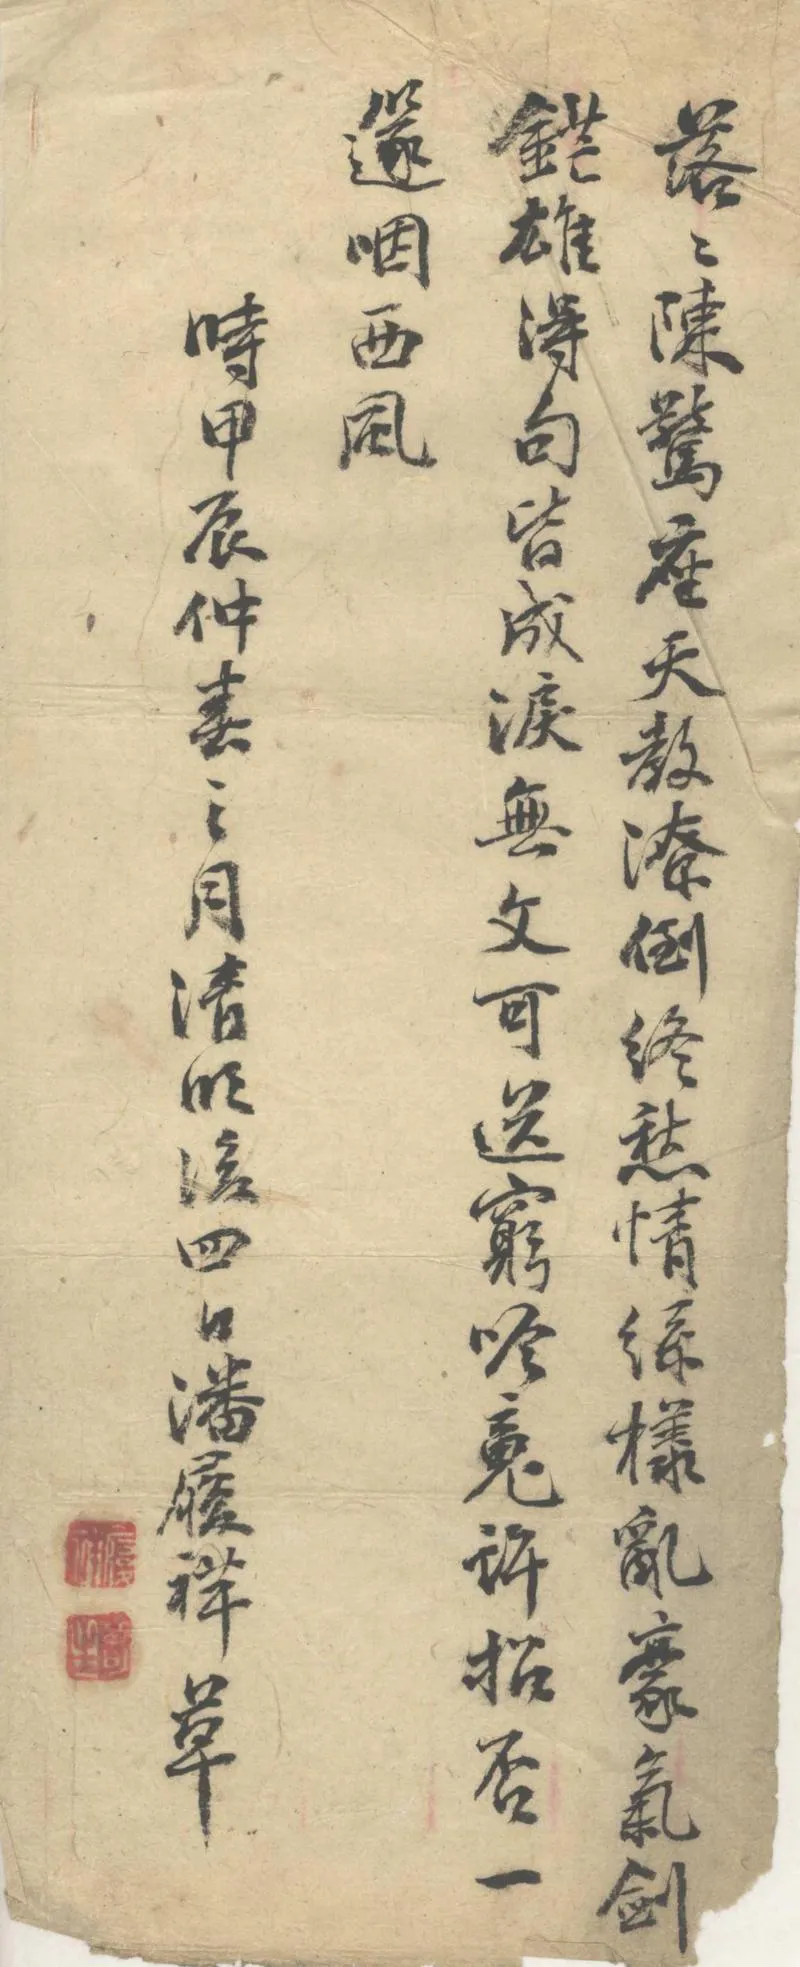 落〻陳驚座天教潦倒終愁情絲樣亂豪氣劍
鋩雄得句皆成淚無文可送窮吟魂許招否一
邃咽西風
時甲辰仲春之月清明後四日潘履祥草